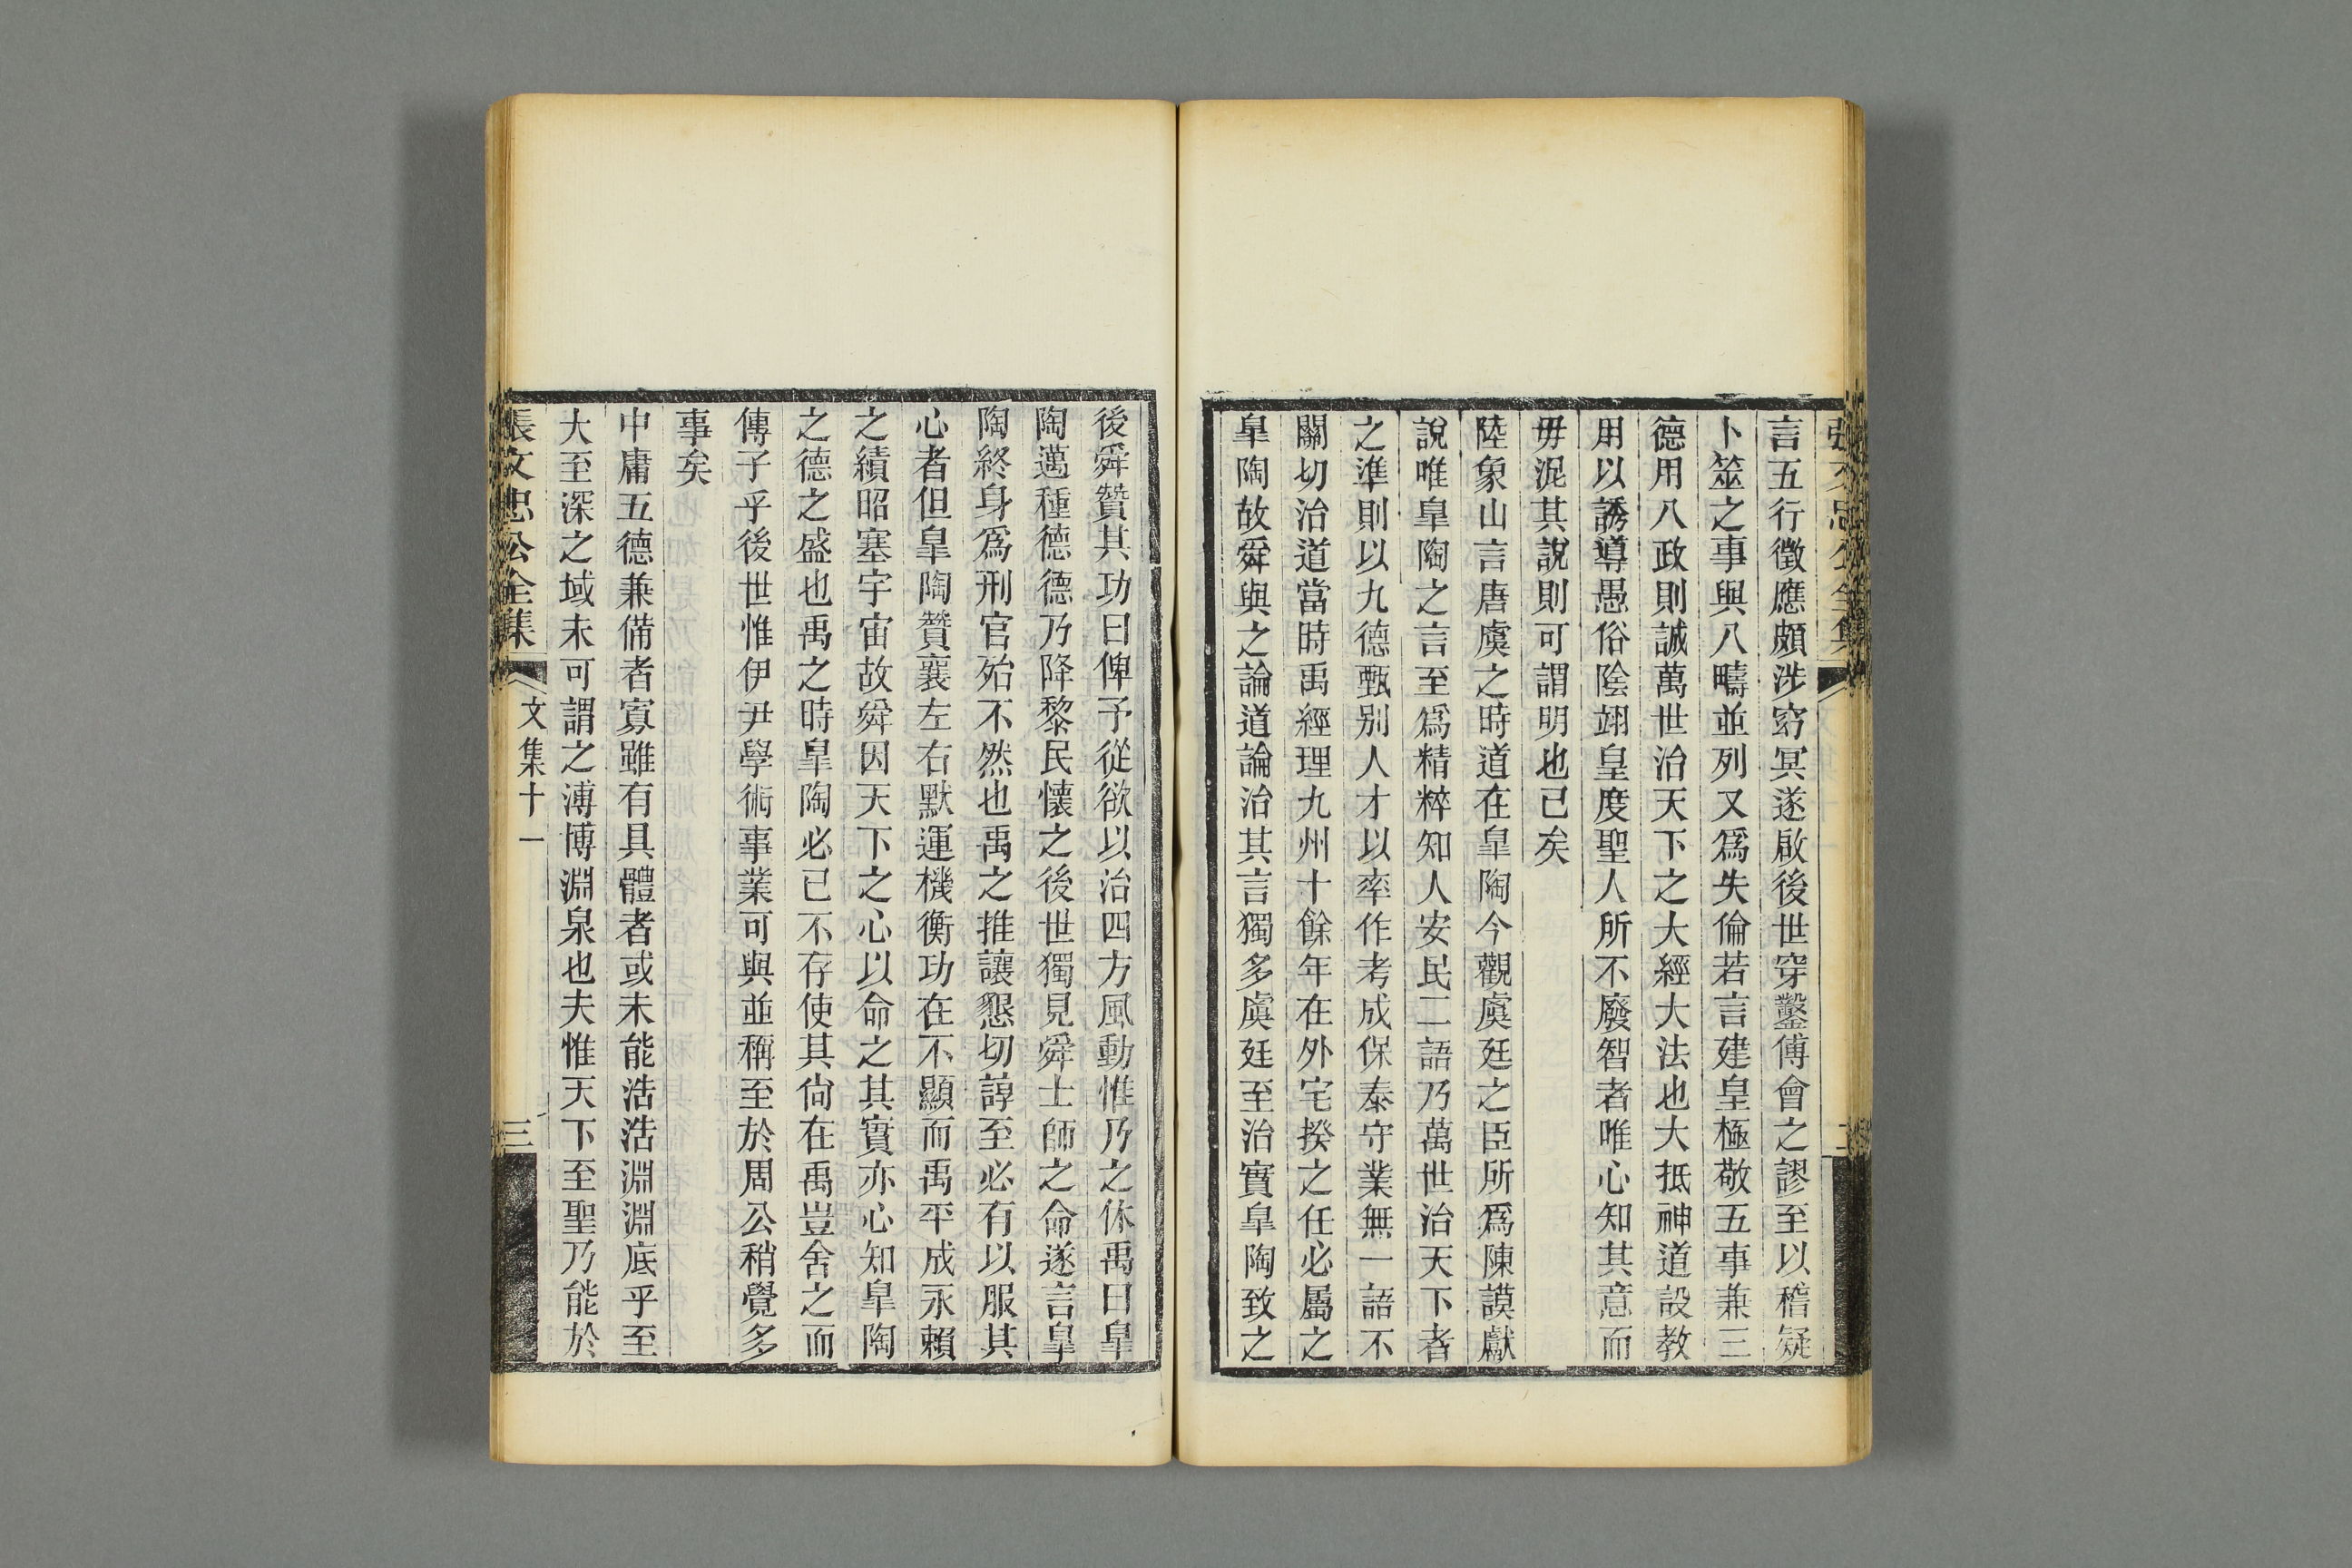 言五行徵應頗涉窈冥遂啟後世穿鑿傅會之謬至以稽疑
卜筮之事與八疇並列又爲失倫若言建皇極敬五事兼三
德用八政則誠萬世治天下之大經大法也大抵神道設教
用以誘導愚俗陰翊皇度聖人所不廢智者唯心知其意而
毋泥其說則可謂明也已矣
陸象山言唐虞之時道在皐陶今觀虞廷之臣所爲陳謨獻
說唯皐陶之言至爲精粹知人安民二語乃萬世治天下者
之準則以九德甄别人才以率作考成保泰守業無一語不
關切治道當時禹經理九州十餘年在外宅揆之任必屬之
皐陶故舜與之論道論治其言獨多虞廷至治實皐陶致之
後舜贊其功曰俾予從欲以治四方風動惟乃之休禹曰皐
陶邁種德德乃降黎民懷之後世獨見舜士師之命遂言皐
陶終身爲刑官殆不然也禹之推讓懇切諄至必有以服其
心者但皐陶贊襄左右默運機衡功在不顯而禹平成永賴
之績昭塞宇宙故舜因天下之心以命之其實亦心知皐陶
之德之盛也禹之時皐陶必已不存使其尙在禹豈舍之而
傳子乎後世惟伊尹學術事業可與並稱至於周公稍覺多
事矣
中庸五德兼備者寡雖有具體者或未能浩浩淵淵底乎至
大至深之域未可謂之溥博淵泉也夫惟天下至聖乃能於
張文忠公全集
文集十一
三